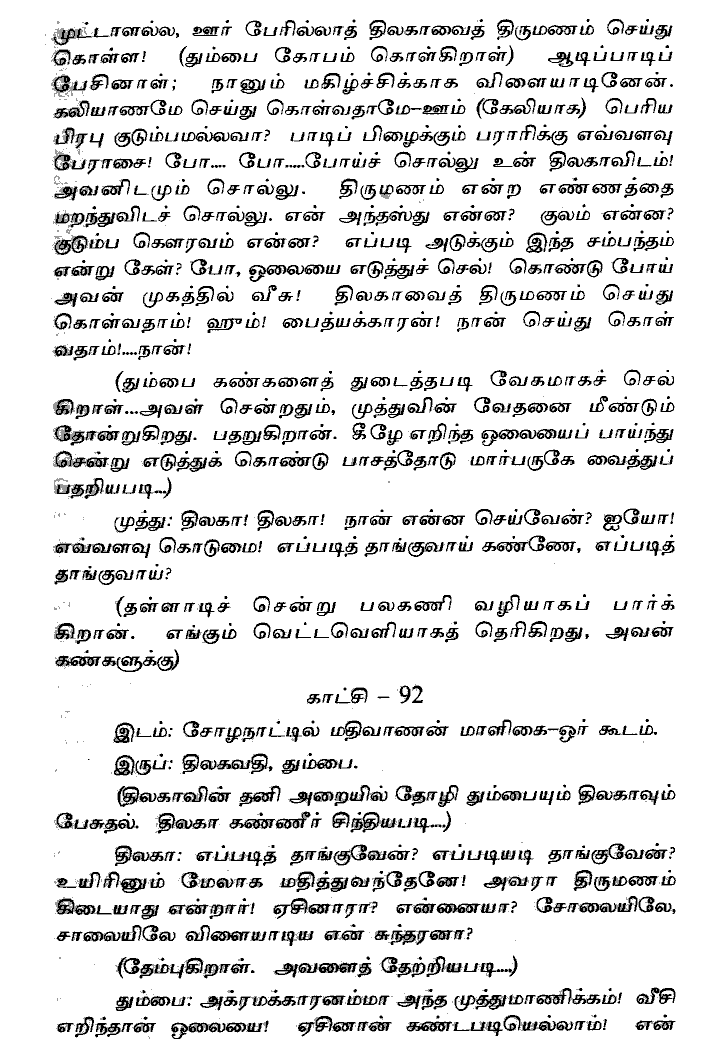 முட்டாளல்ல, ஊர் பேரில்லாத் திலகாவைத் திருமணம் செய்து
கொள்ள! (தும்பை கோபம் கொள்கிறாள்) ஆடிப்பாடிப்
பேசினாள்; நானும் மகிழ்ச்சிக்காக விளையாடினேன்.
கலியாணமே செய்து கொள்வதாமே–ஊம் (கேலியாக) பெரிய
பிரபு குடும்பமல்லவா? பாடிப் பிழைக்கும் பராரிக்கு எவ்வளவு
பேராசை! போ.... போ.....போய்ச் சொல்லு உன் திலகாவிடம்!
அவனிடமும் சொல்லு. திருமணம் என்ற எண்ணத்தை
மறந்துவிடச் சொல்லு. என் அந்தஸ்து என்ன? குலம் என்ன?
குடும்ப கௌரவம் என்ன? எப்படி அடுக்கும் இந்த சம்பந்தம்
என்று கேள்? போ, ஒலையை எடுத்துச் செல்! கொண்டு போய்
அவன் முகத்தில் வீசு! திலகாவைத் திருமணம் செய்து
கொள்வதாம்! ஹும்! பைத்யக்காரன்! நான் செய்து கொள்
வதாம்!....நான்!
(தும்பை கண்களைத் துடைத்தபடி வேகமாகச் செல்
கிறாள்...அவள் சென்றதும், முத்துவின் வேதனை மீண்டும்
தோன்றுகிறது. பதறுகிறான். கீழே எறிந்த ஒலையைப் பாய்ந்து
சென்று எடுத்துக் கொண்டு பாசத்தோடு மார்பருகே வைத்துப்
பதறியபடி....)
முத்து: திலகா! திலகா! நான் என்ன செய்வேன்? ஐயோ!
எவ்வளவு கொடுமை! எப்படித் தாங்குவாய் கண்ணே, எப்படித்
தாங்குவாய்?
(தள்ளாடிச் சென்று பலகணி வழியாகப் பார்க்
கிறான். எங்கும் வெட்டவெளியாகத் தெரிகிறது, அவன்
கண்களுக்கு)
காட்சி – 92
இடம்: சோழநாட்டில் மதிவாணன் மாளிகை–ஓர் கூடம்.
இருப்: திலகவதி, தும்பை.
(திலகாவின் தனி அறையில் தோழி தும்பையும் திலகாவும்
பேசுதல். திலகா கண்ணீர் சிந்தியபடி....)
திலகா: எப்படித் தாங்குவேன்? எப்படியடி தாங்குவேன்?
உயிரினும் மேலாக மதித்துவந்தேனே! அவரா திருமணம்
கிடையாது என்றார்! ஏசினாரா? என்னையா? சோலையிலே,
சாலையிலே விளையாடிய என் சுந்தரனா?
(தேம்புகிறாள். அவளைத் தேற்றியபடி....)
தும்பை: அக்ரமக்காரனம்மா அந்த முத்துமாணிக்கம்! வீசி
எறிந்தான் ஒலையை! ஏசினான் கண்டபடியெல்லாம்! என்